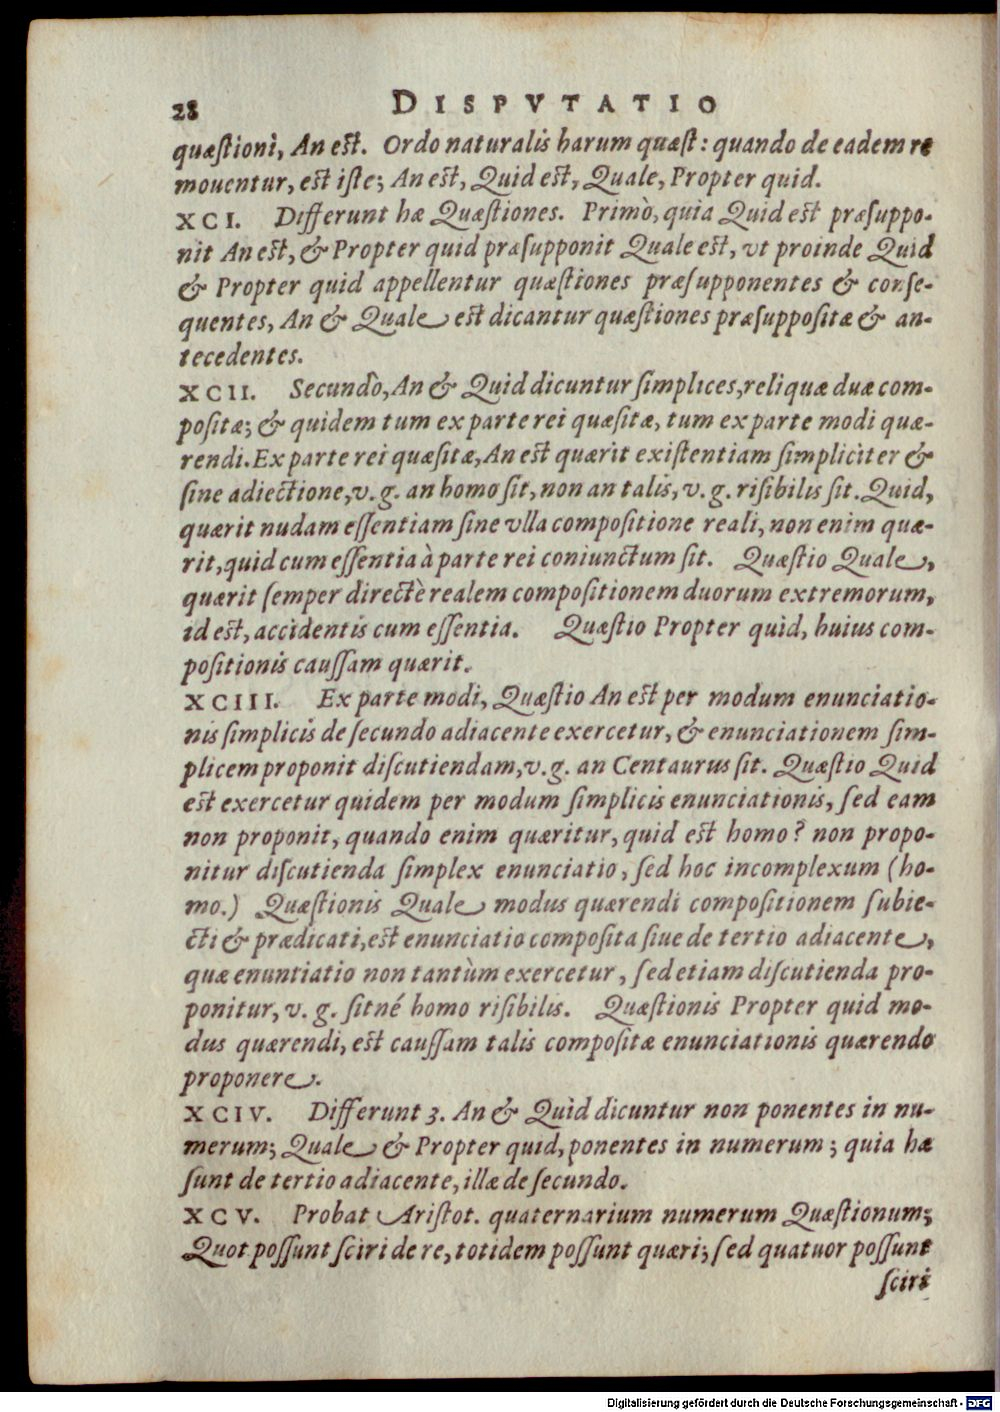 28 DISPVTATIO
quæſtioni, An eſt. Ordo naturalis harum quæſt: quando de eadem re
mouentur, eſt iſte; An eſt, Quid eſt, Quale, Propter quid.
XCI. Differunt hæ Quæſtiones. Primò, quia Quid est præſuppo-
nit An eſt, & Propter quid præſupponit Quale eſt, vt proinde Quid
& Propter quid appellentur quæſtiones præſupponentes & conſe-
quentes, An & Quale eſt dicantur quæſtiones præſuppoſitæ & an-
tecedentes.
XCII. Secundò, An & Quid dicuntur ſimplices, reliquæ duæ com-
poſitæ; & quidem tum ex parte rei quæſitæ, tum ex parte modi quæ-
rendi. Ex parte rei quæſitæ, An eſt quærit exiſtentiam ſimpliciter &
ſine adiectione, v. g. an homo ſit, non an talis, v. g. riſibilis ſit. Quid,
quærit nudam eſſentiam ſine vlla compoſitione reali, non enim quæ-
rit, quid cum eſſentia à parte rei coniunctum ſit. Quæſtio Quale,
quærit ſemper directè realem compoſitionem duorum extremorum,
id eſt, accidentis cum eſſentia. Quæſtio Propter quid, huius com-
poſitionis cauſſam quærit.
XCIII. Ex parte modi, Quæſtio An eſt per modum enunciatio-
nis ſimplicis de ſecundo adiacente exercetur, & enunciationem ſim-
plicem proponit diſcutiendam, v. g. an Centaurus ſit. Quæſtio Quid
eſt exercetur quidem per modum ſimplicis enunciationis, ſed eam
non proponit, quando enim quæritur, quid eſt homo? non propo-
nitur diſcutienda ſimplex enunciatio, ſed hoc incomplexum (ho-
mo.) Quæſtionis Quale modus quærendi compoſitionem ſubie-
cti & prædicati, eſt enunciatio compoſita ſiue de tertio adiacente,
quæ enuntiatio non tantùm exercetur, ſed etiam diſcutienda pro-
ponitur, v. g. ſitné homo riſibilis. Quæſtionis Propter quid mo-
dus quærendi, eſt cauſſam talis compoſitæ enunciationis quærendo
proponere.
XCIV. Differunt 3. An & Quid dicuntur non ponentes in nu-
merum; Quale & Propter quid, ponentes in numerum; quia hæ
ſunt de tertio adiacente, illæ de ſecundo.
XCV. Probat Ariſtot. quaternarium numerum Quæſtionum;
Quot poſſunt ſciri de re, totidem poſſunt quæri; ſed quatuor poſſunt
ſciri
Digitalisierung gefördert durch die Deutsche Forschungsgemeinschaft - DFG